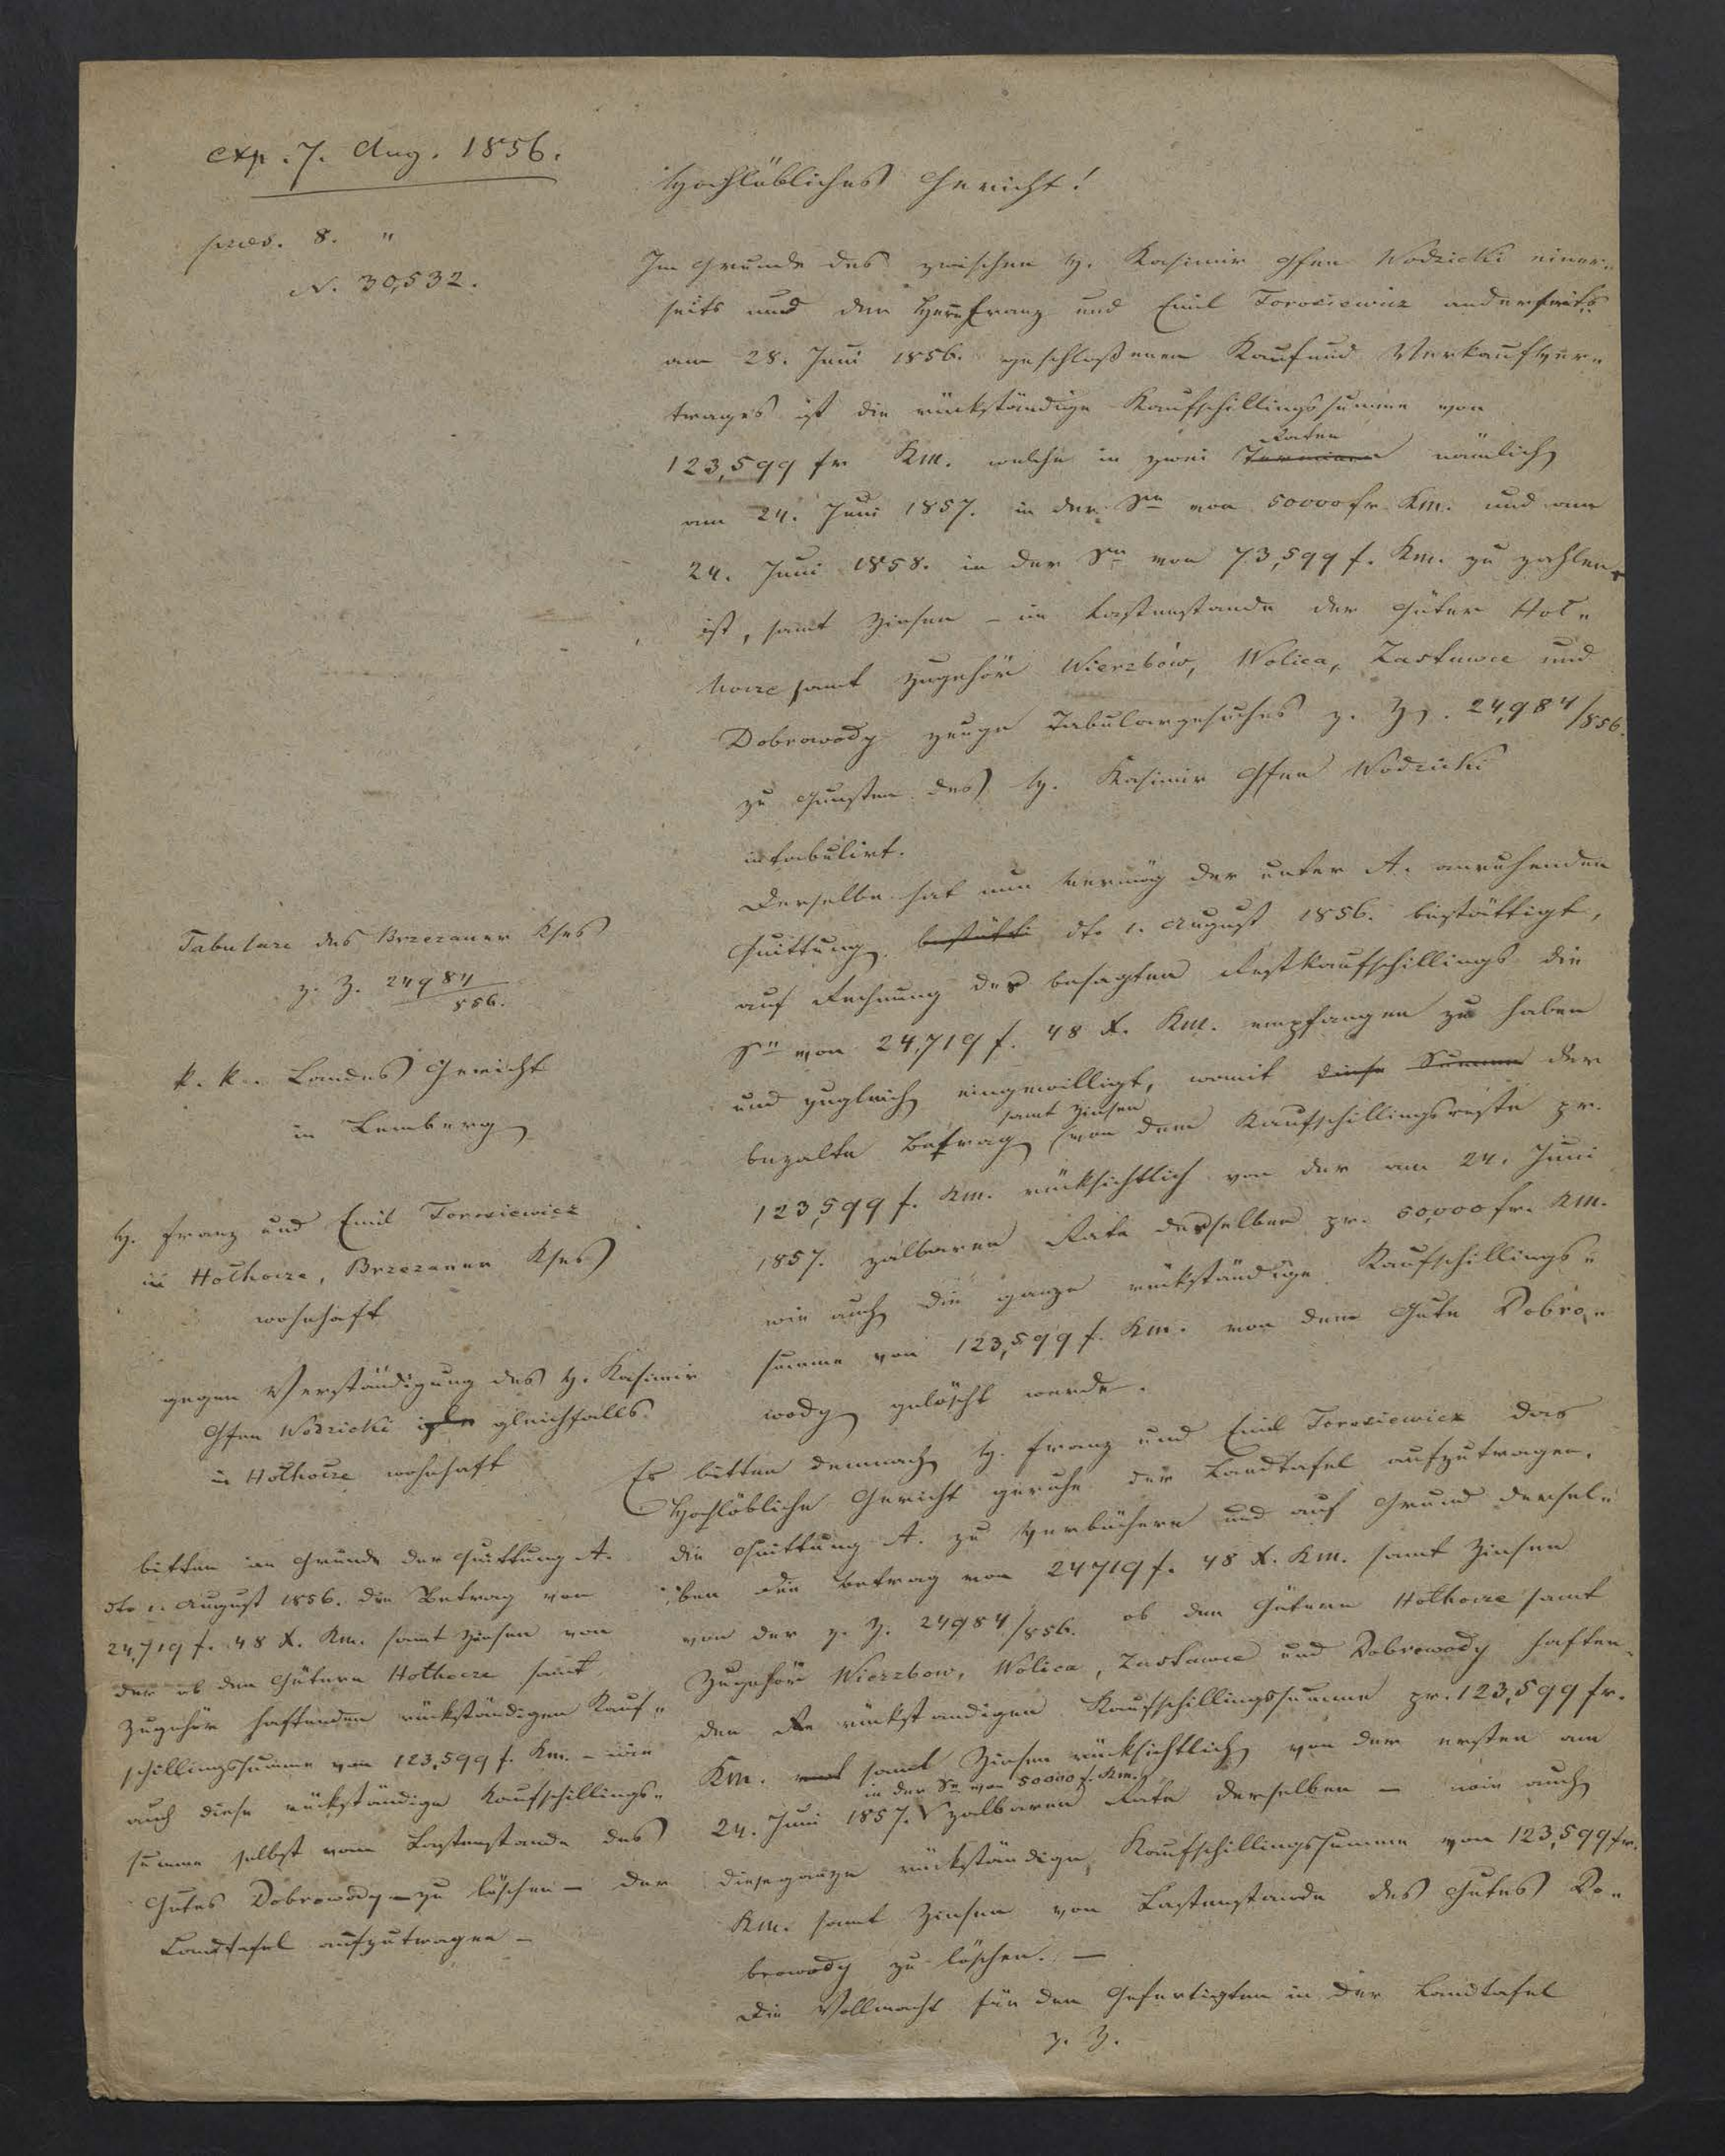 exp. 7. Aug. 1856.
præs. 8. "
N. 30,532.
Hochlöbliches Gericht!
Im Grunde des zwischen H. Kasimir Gfen Wodzicki einer„
seits und den Herrn Franz und Emil Torosiewicz anderseits
am 28. Juni 1856. geschloßenen Kauf und Verkaufver„
trages ist die rückständige Kaufschillingssumme von
123,599 fr Km. welche in zwei Terminen Raten nämlich
am 24. Juni 1857. in der Sm von 50000 fr Km. und am
24. Juni 1858. in der Sm von 73,599 f. Km. zu zahlen
ist, samt Zinsen – im Lastenstande der Güter Hoł„
hocze samt Zugehör Wierzbów, Wolica, Zastawce und
Dobrowody zeuge Tabulargesuches z. Z. 24,984/856.
zu Gunsten des H. Kasimir Gfen Wodzicki
intabulirt.
Derselbe hat nun vermög der unter A. anruhenden
Quittung bestätti dto 1. August 1856. bestättigt,
auf Rechnung des besagten Restkaufschillings die
Sm von 24,719 f. 48 X. Km. empfangen zu haben
und zugleich eingewilligt, womit diese Summe der
bezalte Betrag samt Zinsen von dem Kaufschillingsreste pr.
123,599 f. Km. rücksichtlich von der am 24. Juni
1857. zalbaren Rate desselben pr. 50,000 fr. Km.
wie auch die ganze rückständige Kaufschillings„
summe von 123,599 f. Km. von dem Gute Dobro„
wody gelöscht werde.
Es bitten demnach H. Franz und Emil Torosiewicz das
Hochlöbliche Gericht geruhe der Landtafel aufzutragen,
die Quittung A. zu verbüchern und auf Grund dersel„
ben den Betrag von 24719 f. 48 X. Km. samt Zinsen
von der z. Z. 24984/856. ob den Gütern Hołhocze samt
Zugehör Wierzbow, Wolica, Zastawce und Dobrowody haften„
den Re rückständigen Kaufschillingssumme pr. 123,599 fr.
Km. und samt Zinsen rücksichtlich von der ersten am
24. Juni 1857. in der Sm von 50000 f. Km. zalbaren Rate derselben – wie auch
diese ganze rückständige Kaufschillingssumme von 123,599 fr.
Km. samt Zinsen vom Lastenstande des Gutes Do„
browody zu löschen. –
Die Vollmacht für den Gefertigten in der Landtafel
z. Z.
Tabulare des Brzezaner Kses
z. Z. 24984/856.
k. k. Landes Gericht
in Lemberg
H. Franz und Emil Torosiewicz
in Hołhocze, Brzezaner Kses
wohnhaft
gegen Verständigung des H. Kasimir
Gfen Wodzicki gleichfalls
in Hołhocze wohnhaft
bitten im Grunde der Quittung A.
dto 1. August 1856. den Betrag von
24,719 f. 48 X. Km. samt Zinsen von
der ob den Gütern Hołhocze samt
Zugehör haftenden rückständigen Kauf„
schillingssumme von 123,599 f. Km. – wie
auch diese rückständige Kaufschillings„
summe selbst vom Lastenstande des
Gutes Dobrowody – zu löschen – der
Landtafel aufzutragen –